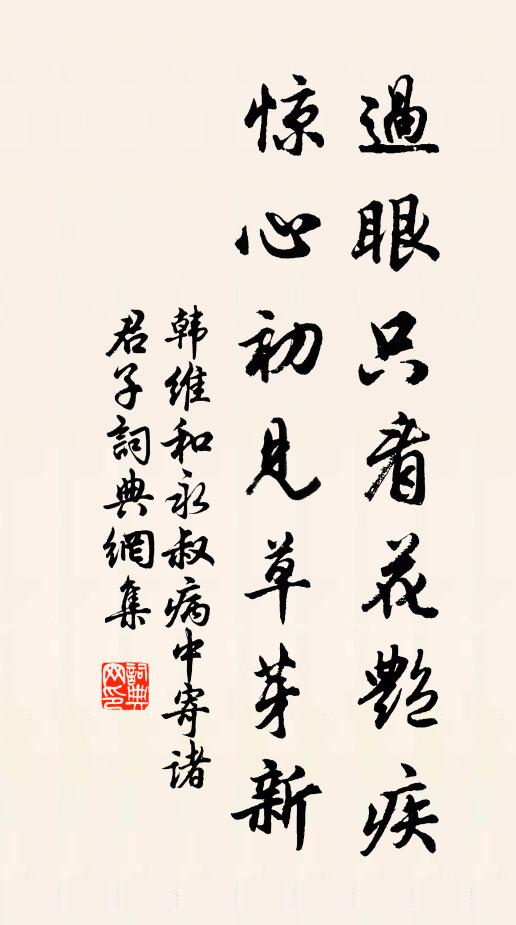 過眼只看花艷疾
惊心初見草芽新
韩維和永叔病中寄诸
君子詞典網集
詞典
网印